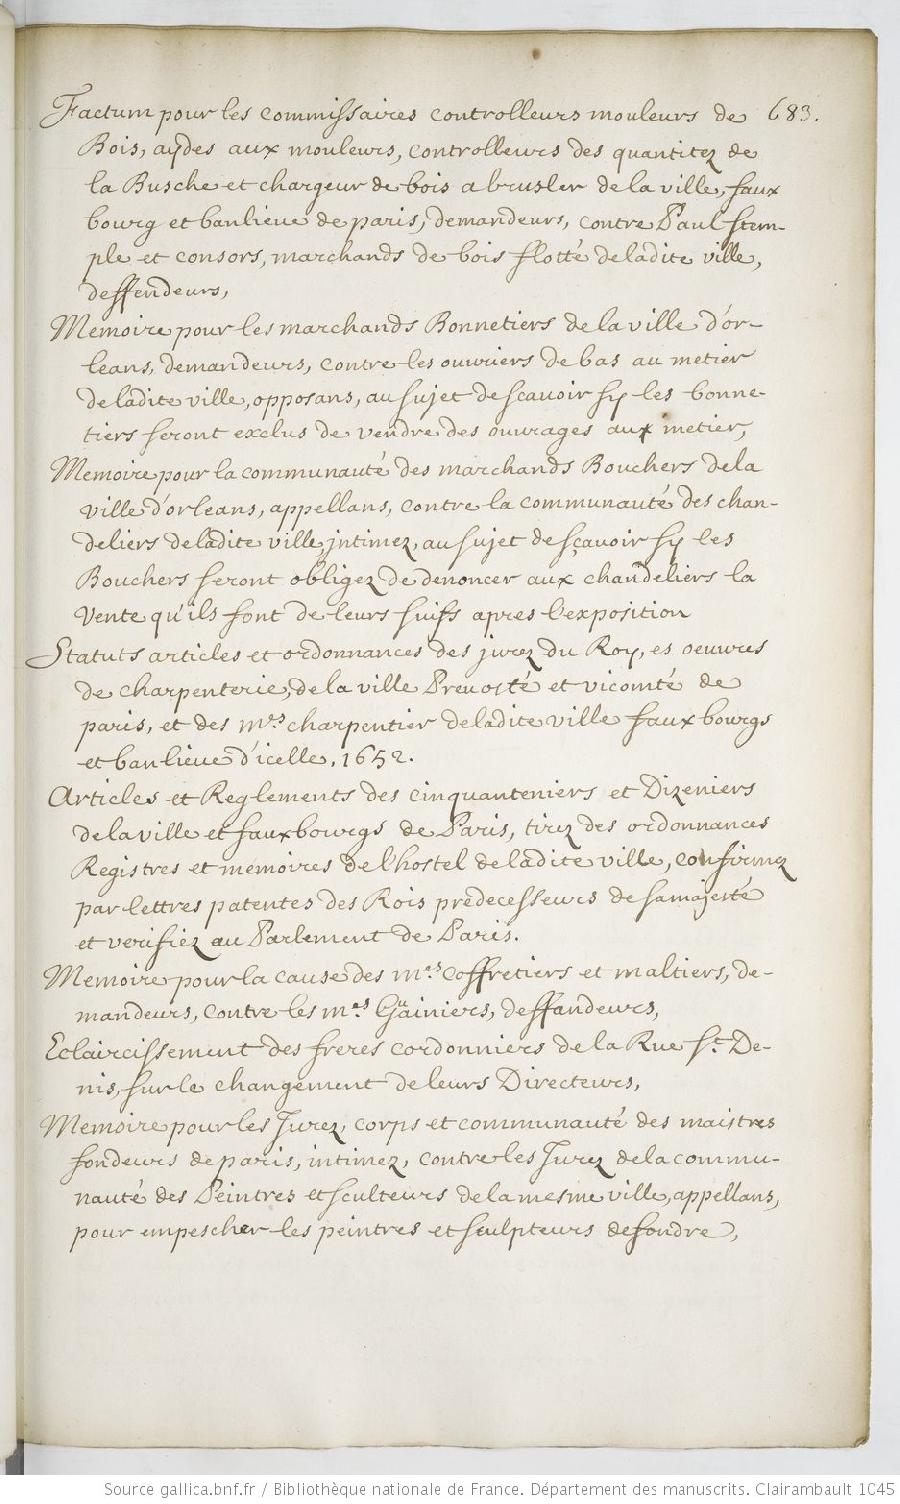 Factum pour les commissaires controlleurs mouleurs de 683.
Bois, aydes aux mouleurs, controlleurs des quantitez de
la Busche et chargeur de bois a brusler de la ville, faux
bourg et banlieue de paris, demandeurs, contre Paul
ple et consors, marchands de bois flotté de ladite ville,
deffendeurs,
Memoire pour les marchands Bonnetiers de la ville d'or-
leans, demandeurs, contre les ouvriers de bas au metier
de ladite ville, opposans, au sujet de scavoir sy les bonne-
tiers seront exclus de vendre des ouvrages aux metier,
Memoire pour la communauté des marchands Bouchers de la
ville d'orleans, appellans, contre la communauté des chan-
deliers de ladite ville jntimez, au sujet de sçavoir sy les
Bouchers seront obligez de denoncer aux chandeliers la
vente qu'ils font de leurs suifs apres l'exposition
Statuts articles et ordonnances des jurez du Roy, es oeuvres
de charpenterie, de la ville Prevosté et vicomté de
paris, et des mrs charpentier de ladite ville faux bourgs
et banlieue d'icelle, 1652.
Articles et Reglements des cinquanteniers et Dizeniers
de la ville et faux bourgs de Paris, tirez des ordonnances
Registres et memoires de l'hostel de ladite ville, confirmez
par lettres patentes des Rois predecesseurs de sa majesté
et verifiez au Parlement de Paris.
Memoire pour la cause des mes coffretiers et maltiers, de-
mandeurs, contre les mes Gainiers, deffandeurs,
Eclaircissement des freres cordonniers de la Rue St. De-
nis, sur le changement de leurs Directeurs,
Memoire pour les Jurez, corps et communauté des maistres
fondeurs de paris, intimez, contre les Jurez de la commu-
nauté des Peintres et sculteurs de la mesme ville, appellans,
pour empescher les peintres et sculpteurs de fondre,
Source gallica.bnf.fr / Bibliothèque nationale de France. Département des manuscrits. Clairambault 1045